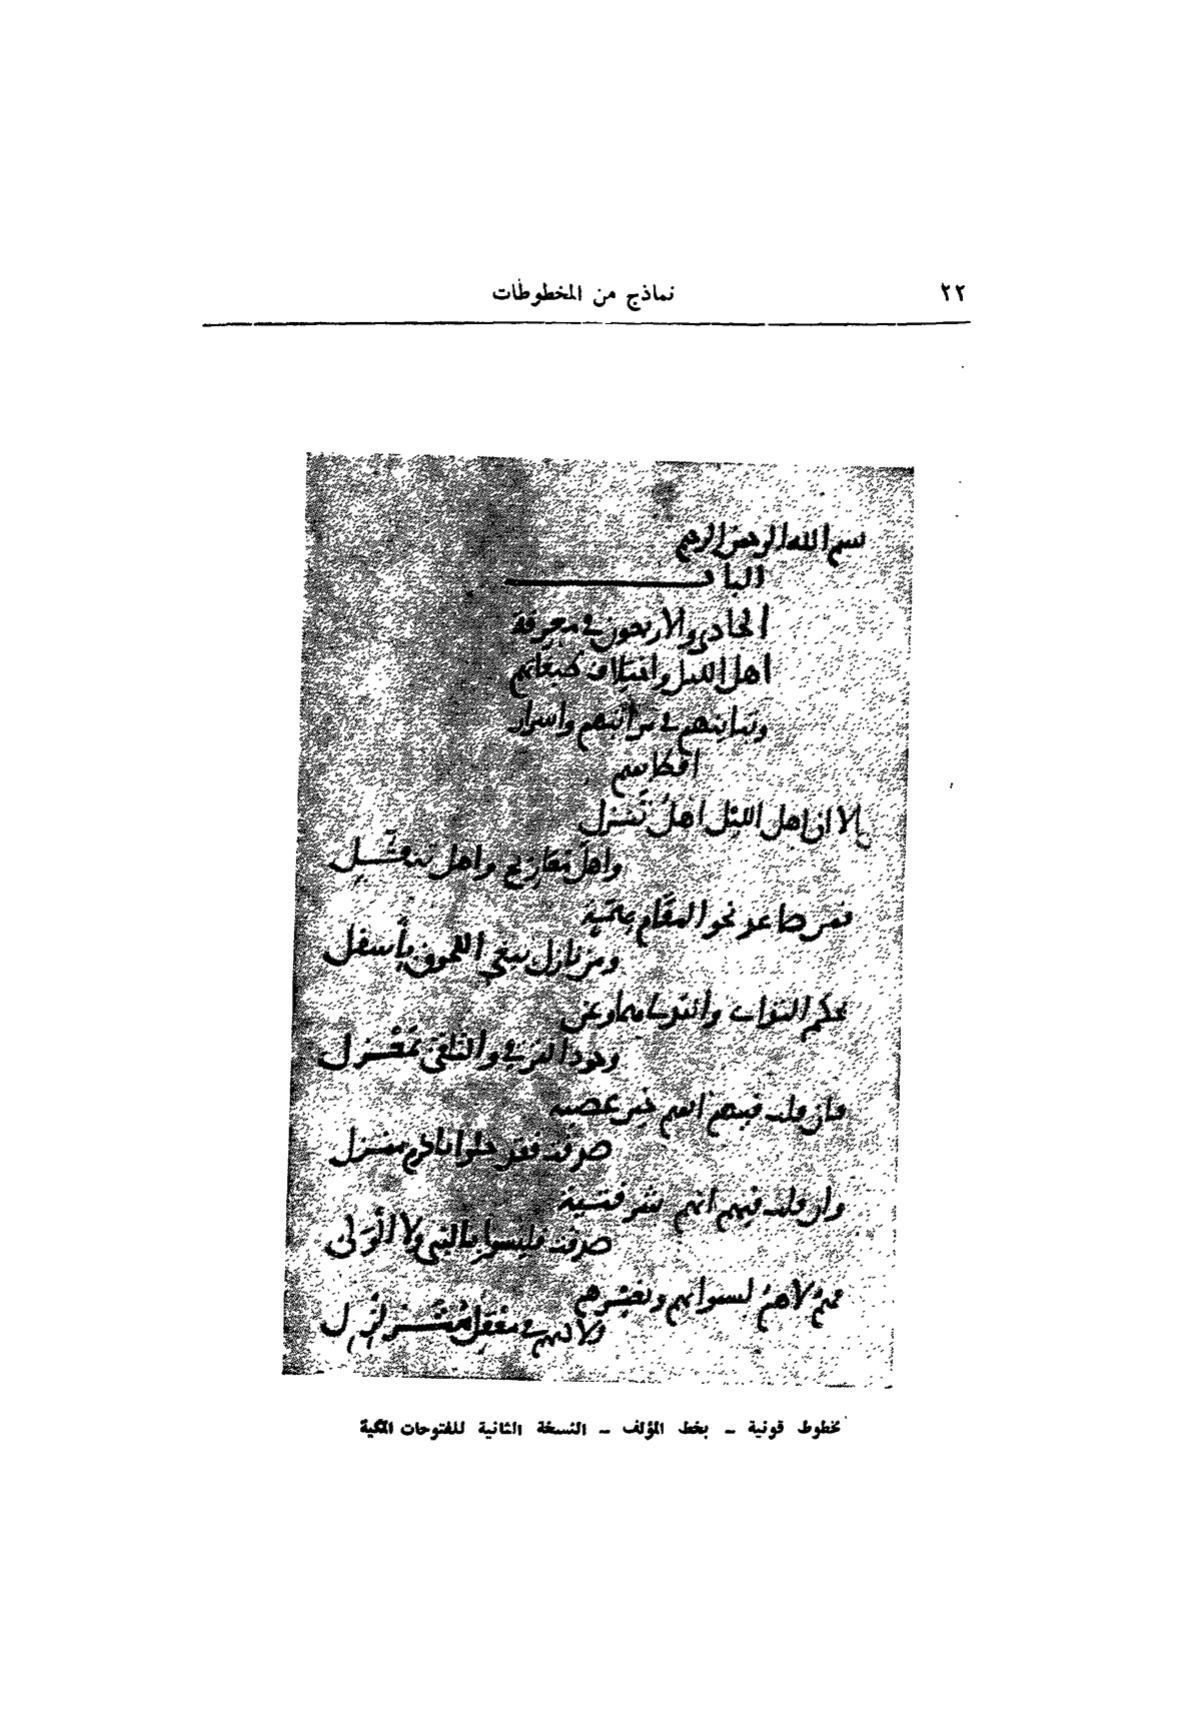 ٢٢
نماذج من المخطوطات
بسم الله الرحمن الرحيم
الباب
الحادي والاربعون في معرفة
اهل الليل واختلاف طبقاتهم
وتباينهم في مراتبهم واسرار
اقطابهم
الا ان اهل الليل اهل تنزل
واهل معاريج واهل تنقل
فمن صاعد نحو المقام بهمة
ومن نازل يبغي اللحوق بأسفل
بحكم التداني والتدلي هما وعن
وجود الترقي والتلقي بمعزل
فان قلت فيهم انهم خير عصبة
صدقت فقد حلوا باكرم منزل
وان قلت فيهم انهم شر فتية
صدقت فليسوا بالنبي ولا الولي
فهم لا هم ليسوا بهم وبغيرهم
ولاكنهم في معقل متزلزل
مخطوط قونية – بخط المؤلف – النسخة الثانية للفتوحات المكية